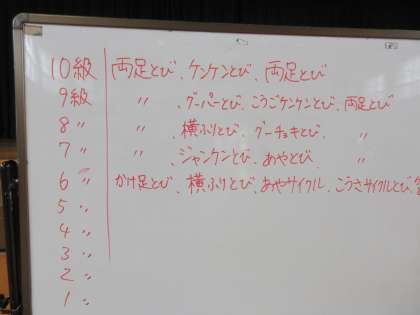 10級 両足とび、ケンケンとび、両足とび
9級 〃 、グーパーとび、こうごケンケンとび、両足とび
8〃 〃 、横ふりとび、グーチョキとび、〃
7〃 〃 、ジャンケンとび、あやとび、〃
6〃 かけ足とび、横ふりとび、あやサイクル、こうさサイクルとび、
5〃
4〃
3〃
2〃
1〃